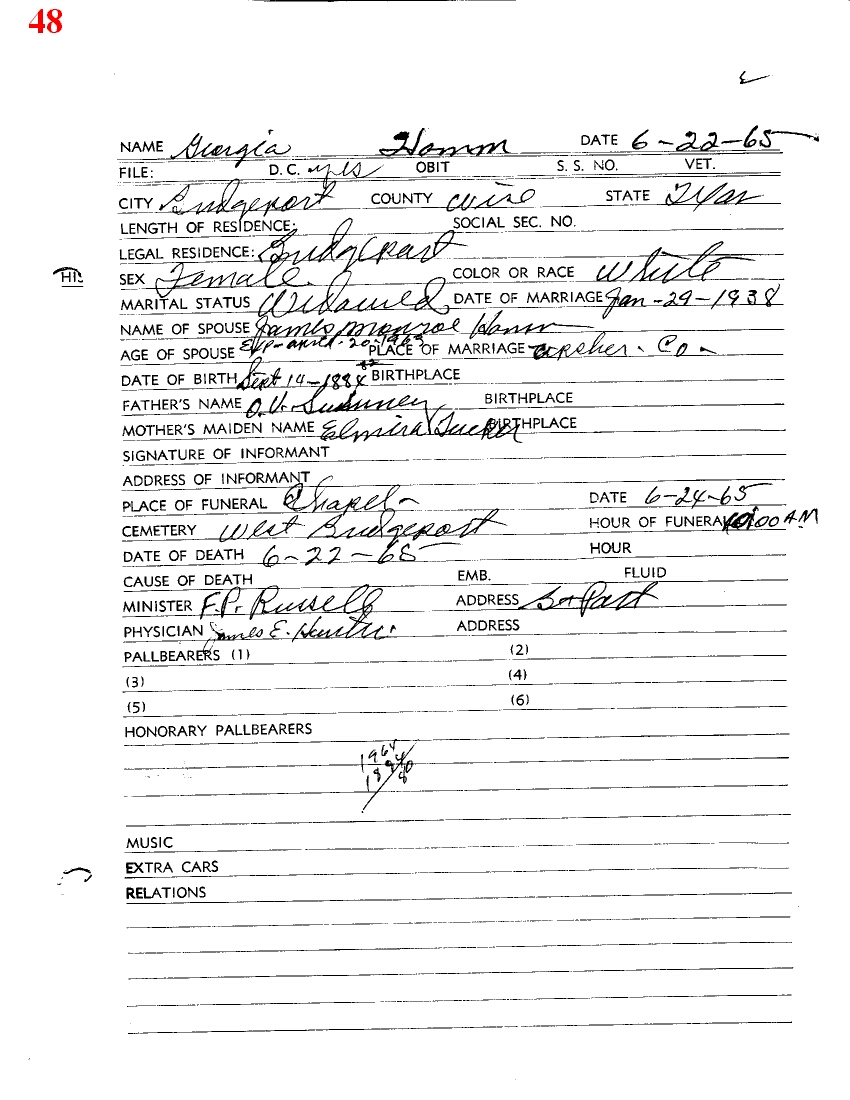 48
NAME Georgia Hamm DATE 6-22-65
FILE: D.C. yes OBIT S. S. NO. VET.
CITY Bridgeport COUNTY Wise STATE Texas
LENGTH OF RESIDENCE: SOCIAL SEC. NO.
LEGAL RESIDENCE: Bridgeport
SEX Female COLOR OR RACE White
MARITAL STATUS Widowed DATE OF MARRIAGE Jan-29-1938
NAME OF SPOUSE James Monroe Hamm
AGE OF SPOUSE Exp-April-20-1963 PLACE OF MARRIAGE Upsher-Co-
DATE OF BIRTH Sept 14-1884 82 BIRTHPLACE
FATHER'S NAME O.V. BIRTHPLACE
MOTHER'S MAIDEN NAME Elmira Tucker BIRTHPLACE
SIGNATURE OF INFORMANT
ADDRESS OF INFORMANT
PLACE OF FUNERAL Chapel- DATE 6-24-65
CEMETERY West Bridgeport HOUR OF FUNERAL 10:00 AM
DATE OF DEATH 6-22-65 HOUR
CAUSE OF DEATH EMB. FLUID
MINISTER F.P. Russell ADDRESS
PHYSICIAN James E. ADDRESS
PALLBEARERS (1) (2)
(3) (4)
(5) (6)
HONORARY PALLBEARERS
1964
18
MUSIC
EXTRA CARS
RELATIONS